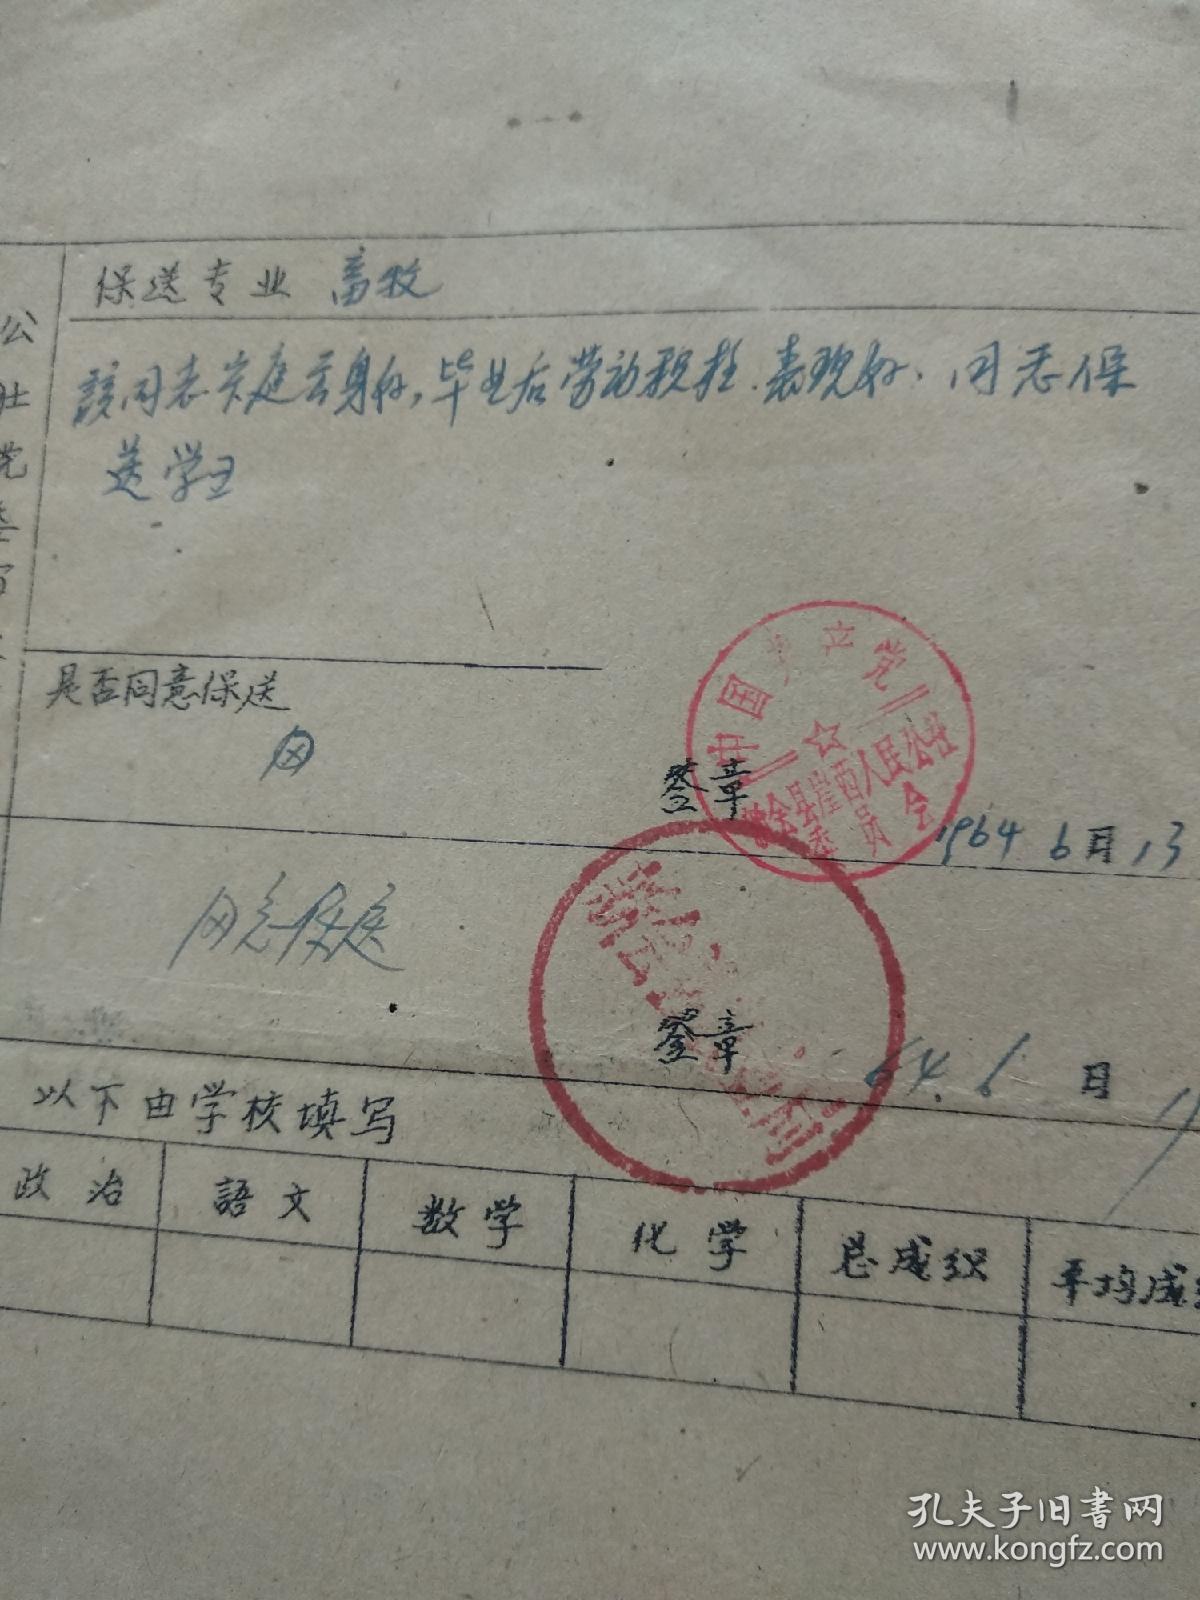 保送专业 畜牧
公社党委
該同志家庭出身好，毕业后劳动积极.表现好.同意保
送学习
是否同意保送
同
中国共产党
县崖西人民公社
委员会
签章
1964 6月13
同意
签章
64.6月
以下由学校填写
政治 語文 数学 化学 总成织 平均成
孔夫子旧书网
www.kongfz.com